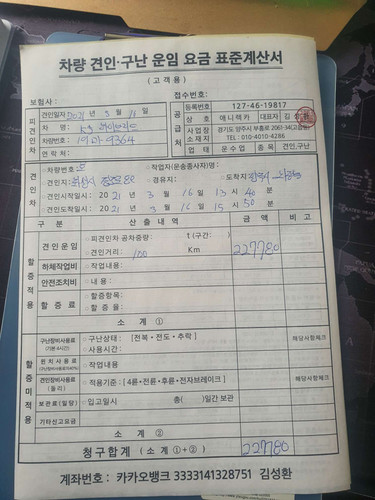 차량 견인·구난 운임 요금 표준계산서
(고객용)
보험사: 접수번호:
피견인차
견인일자 2021 3 16
차 명
차량번호 9364
연락처:
공급처
등록번호 127-46-19817
상호 애니렉카 대표자 김성환
사업장소재지 경기도 양주시 부흥로 2093-34(고읍동)
TEL : 010-4010-4286
업태 운수업 종목 견인,구난
견인차
차량번호 작업자(운송종사자)명:
견인지: 경유지: 도착지:
견인시작일시: 2021년 3월 16일 13시 40분
견인도착일시: 2021년 3월 16일 15시 50분
구분 산출내역 금액 비고
할증적용
견인운임 피견인차 공차중량: t (구간: )
견인거리: 100 Km 227780
하체작업비 작업내용:
안전조치비 내용:
할증료 할증항목:
할증율:
소계 ①
할증미적용
구난장비사용료 (기본 4시간) 구난상태: [전복·전도·추락] 해당사항체크
사용시간:
윈치사용료 작업내용
견인장비사용료 (돌리) 적용기준: [4륜·전륜·후륜·전자브레이크] 해당사항체크
보관료(일당) 입고일시 총( )일간 보관
기타신고요금
소계 ②
청구합계 (소계 ①+②) 227780
계좌번호: 카카오뱅크 3333141328751 김성환